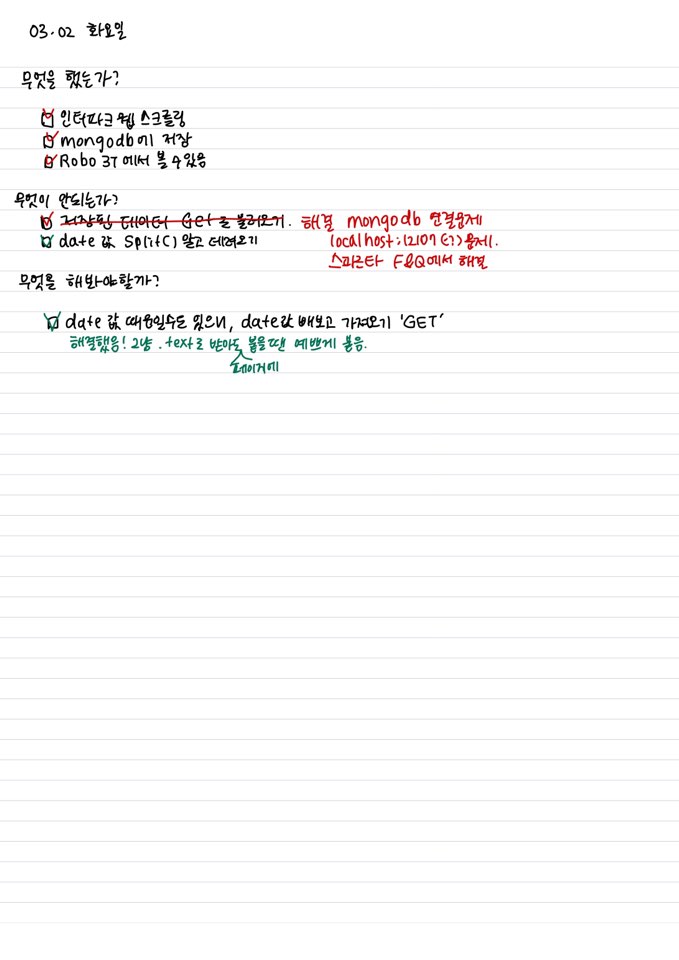 03.02 화요일
무엇을 했는가?
인터파크 웹 스크롤링
mongodb에 저장
Robo 3T에서 볼 수 있음
무엇이 안되는가?
저장된 데이터 Get로 불러오기. 해결 mongodb 연결문제
date 값 Split() 말고 데려오기
localhost; 문제.
스파르타 F&Q에서 해결
무엇을 해봐야할까?
date 값 때문일수도 있으니, date값 빼보고 가져오기 'GET'
해결했음! 그냥 .text로 받아도 붙을땐 예쁘게 붙음.
페이지에